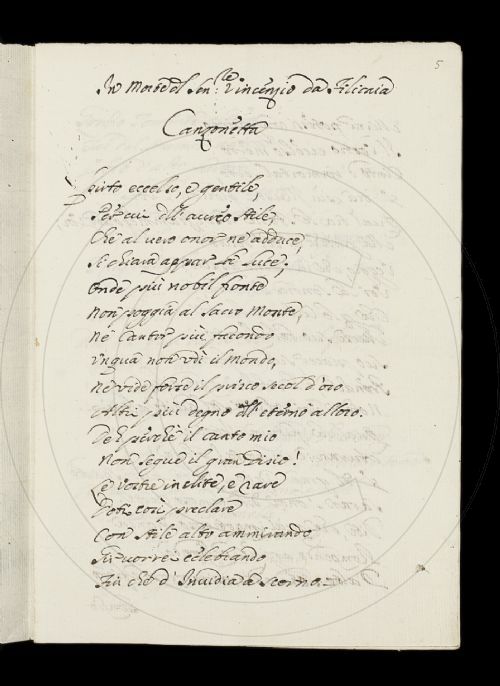 5
In Morte del Sen:re Vincenzio da Filicaia
Canzonetta
Spirto eccelso, e gentile,
Per cui dell' aureo stile,
Che al vero onor ne adduce,
Sì chiara appar la luce;
Onde più nobil fonte
Non poggia al sacro Monte,
Nè Cantor più facondo
Unqua non udì il Mondo,
Nè vide forse il prisco secol d'oro
Altri più degno dell' eterno alloro.
Deh perchè il canto mio
Non segue il gran Disio!
Le vostre inclite, e rare
Doti così preclare
Con stile alto ammirando
Si vorrei celebrando
Più che d' Invidia a scorno